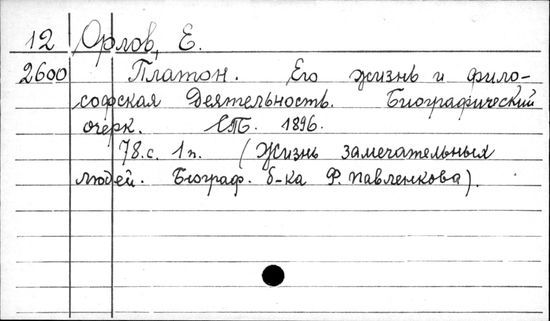 12 Орлов, Е.
2600 Платон. Его жизнь и фило-
софская деятельность. Биографический
очерк. СПб. 1896.
78.с. 1п. (Жизнь замечательных
людей. Биограф. б-ка Ф. Павленкова).